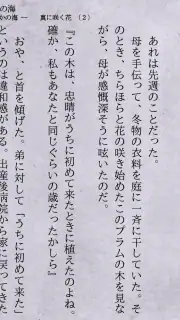 の海
かの海 一　真に咲く花（2）
あれは先週のことだった。
母を手伝って、冬物の衣料を庭に一斉に干していた。そ
のとき、ちらほらと花の咲き始めたこのプラムの木を見な
がら、母が感慨深そうに呟いたのだ。
『この木は、忠晴がうちに初めて来たときに植えたのよね。
確か、私もあなたと同じぐらいの歳だったかしら』
おや、と首を傾げた。弟に対して「うちに初めて来た」
というのは違和感がある。出産後病院から家に戻ってきた